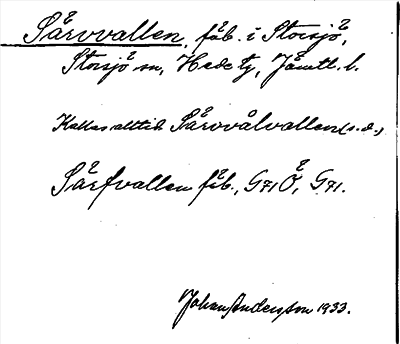 Särvvallen, fäb. i Storsjö,
Storsjö sn, Hede tg, Jämtl. l.
Kallas alltid Särvvålvallen (s.d.)
Särfvallen fäb., G71 Ö, G71.
Johan Andersson 1933.